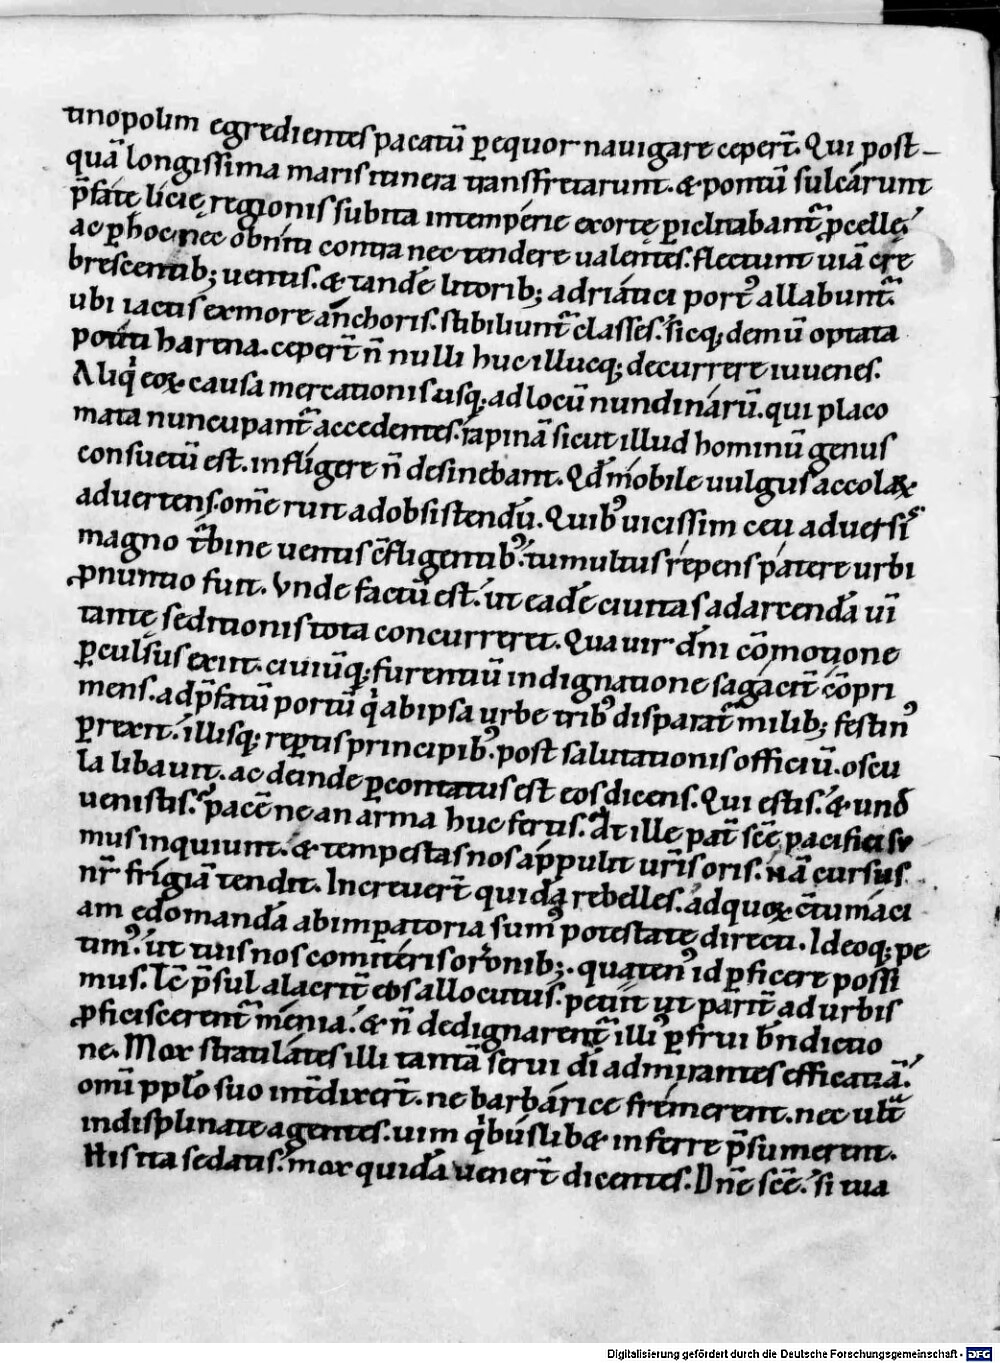 tinopolim egredientes pacatū p̲ equor nauigare ceper̄t. Qui post-
quā longissima maris itinera transfretarunt. & pontū sulcarunt
p̄fatę lycię regionis subita intemperie exortę p̲iclitabant᷑ p̲cellę.
ac p̲ hoc nec obniti contra nec tendere ualentes. flectunt uiā cre
brescentib; uentis. & tandē litorib; adriatici port᷒ allabunt᷑.
ubi iactis ex more anchoris. stibiliunt᷑ classes. sicq; demū optata
potiti harena. ceper̄t n̄ nulli huc illucq; decurrere iuuenes.
Aliqͥ eoꝝ causa mercationis usq; ad locū nundinarū. qui placo
mata nuncupant᷑ accedentes. rapinā sicut illud hominū genus
consuetū est. infligere n̄ desinebant. Qd̄ mobile uulgus accolaꝝ
aduertens. om̄e ruit ad obsistendū. Quib᷒ uicissim ceu aduersis
magno t᷑bine uentis c̄fligentib᷒. tumultus repens patere urbi
ꝓnuntio fuit. Vnde factū est. ut eadē ciuitas ad arcendā ui
tantę seditionis tota concurreret. Qua uir dn̄i cōmotione
p̲culsus exiit. ciuiūq; furentiū indignatione sagacit̄ cōpri
mens. ad p̄fatū portū qͥ ab ipsa urbe trib᷒ disparat᷑ milib; festin᷒
p̲rexit. illisq; rep̲tis principib᷒. post salutationis officiū. oscu
la libauit. ac deinde p̲contatus est eos dicens. Qui estis. & unđ
uenistis. pacē ne an arma huc fertis. At ille pat̄ sc̄ę pacifici su
mus inquiunt. & tempestas nos appulit ur̄is oris. Nā cursus
nr̄ frigiā tendit. Increuer̄t quidā rebelles. ad quoꝝ c̄tumaci
am edomandā ab imp̲atoria sum᷒ potestate directi. Ideoq; pe
tim᷒. ut tuis nos comiteris or̄onib;. quaten᷒ id p̲ficere possi
mus. Tc̄ p̄sul alacrit̄ eos allocutus. petiit ut parit̄ ad urbis
ꝓficiscerent᷑ menia. & n̄ dedignarent᷑ illi᷒ p̲frui bn̄dictio
ne. Mox stratilates illi tantā serui dī admirantes efficatiā.
omī pp̄lo suo int̄dixer̄t. ne barbarice fremerent. nec ult̄
indisplinate agentes. uim qͥbuslib& inferre p̄sumerent.
His ita sedatis. mox quidā uener̄t dicentes. Dn̄e sc̄e. si tua
Digitalisierung gefördert durch die Deutsche Forschungsgemeinschaft - DFG